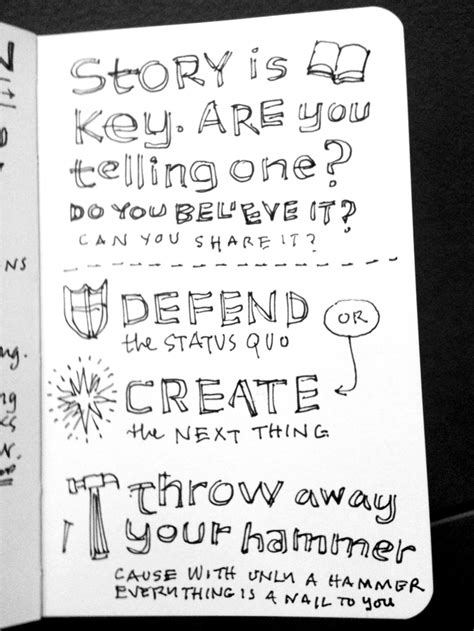 STORY is
Key. ARE you
telling one?
DO YOU BELIEVE IT?
CAN YOU SHARE IT?
DEFEND
OR
the STATUS QUO
CREATE
the NEXT THING
throw away
your hammer
CAUSE WITH ONLY A HAMMER
EVERYTHING IS A NAIL TO YOU
NS
ng.